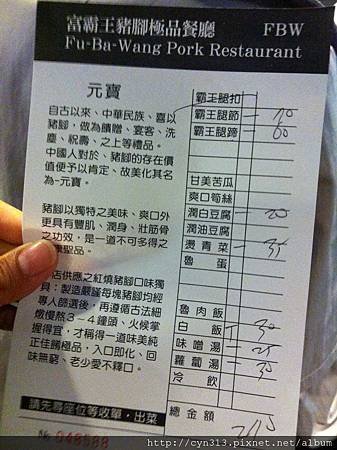 富霸王豬腳極品餐廳
FBW
Fu-Ba-Wang Pork Restaurant
元寶
自古以來、中華民族、喜以
豬腳，做為饋贈、宴客、洗
塵、祝壽、之上等禮品。
中國人對於、豬腳的存在價
值便予以肯定、故美化其名
為-元寶。
豬腳以獨特之美味、爽口外
更具有豐肌、潤身、壯筋骨
之功效，是一道不可多得之
康聖品。
店供應之紅燒豬腳口味獨
具：製造嚴謹每塊豬腳均經
專人篩選後，再遵循古法細
燉慢熬3－4鐘頭、火候掌
握得宜，才稱得一道味美純
正佳餚極品，入口即化、回
味無窮、老少愛不釋口。
請先尋座位等收單，出菜
048588
霸王腿扣
霸王腿節
霸王腿蹄 60
甘美苦瓜
爽口筍絲
潤白豆腐 20
潤油豆腐
燙青菜 35
魯蛋
魯肉飯
白飯 30
味噌湯 25
蘿蔔湯 30
冷飲
總金額
http://cyn313.pixnet.net/album